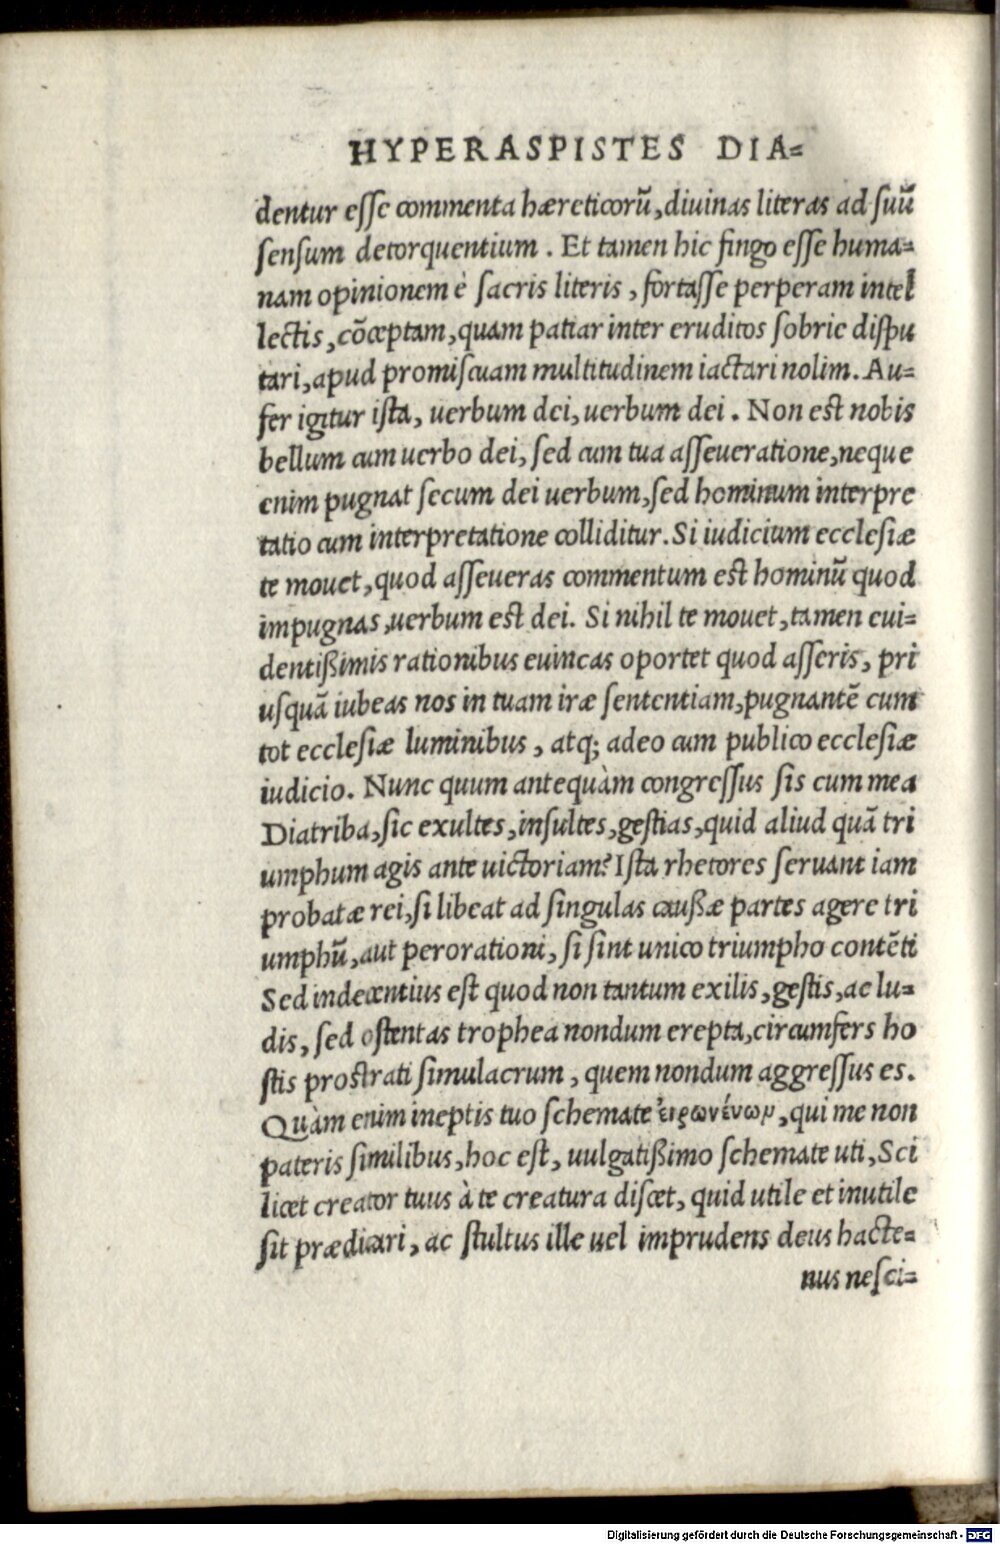 HYPERASPISTES DIA=
dentur esse commenta hæreticorũ, diuinas literas ad suũ
sensum detorquentium. Et tamen hic fingo esse huma=
nam opinionem è sacris literis, fortasse perperam intel
lectis, cõceptam, quam patiar inter eruditos sobrie dispu
tari, apud promiscuam multitudinem iactari nolim. Au=
fer igitur ista, uerbum dei, uerbum dei. Non est nobis
bellum cum uerbo dei, sed cum tua asseueratione, neque
enim pugnat secum dei uerbum, sed hominum interpre
tatio cum interpretatione colliditur. Si iudicium ecclesiæ
te mouet, quod asseueras commentum est hominũ quod
impugnas, uerbum est dei. Si nihil te mouet, tamen eui=
dentißimis rationibus euincas oportet quod asseris, pri
usquã iubeas nos in tuam iræ sententiam, pugnantẽ cum
tot ecclesiæ luminibus, atq; adeo cum publico ecclesiæ
iudicio. Nunc quum antequàm congressus sis cum mea
Diatriba, sic exultes, insultes, gestias, quid aliud quã tri
umphum agis ante uictoriam? Ista rhetores seruant iam
probatæ rei, si libeat ad singulas caußæ partes agere tri
umphũ, aut perorationi, si sint unico triumpho contẽti
Sed indecentius est quod non tantum exilis, gestis, ac lu=
dis, sed ostentas trophea nondum erepta, circumfers ho
stis prostrati simulacrum, quem nondum aggressus es.
Quàm enim ineptis tuo schemate, qui me non
pateris similibus, hoc est, uulgatißimo schemate uti, Sci
licet creator tuus à te creatura discet, quid utile et inutile
sit prædicari, ac stultus ille uel imprudens deus hacte=
nus nesci=
Digitalisierung gefördert durch die Deutsche Forschungsgemeinschaft - DFG